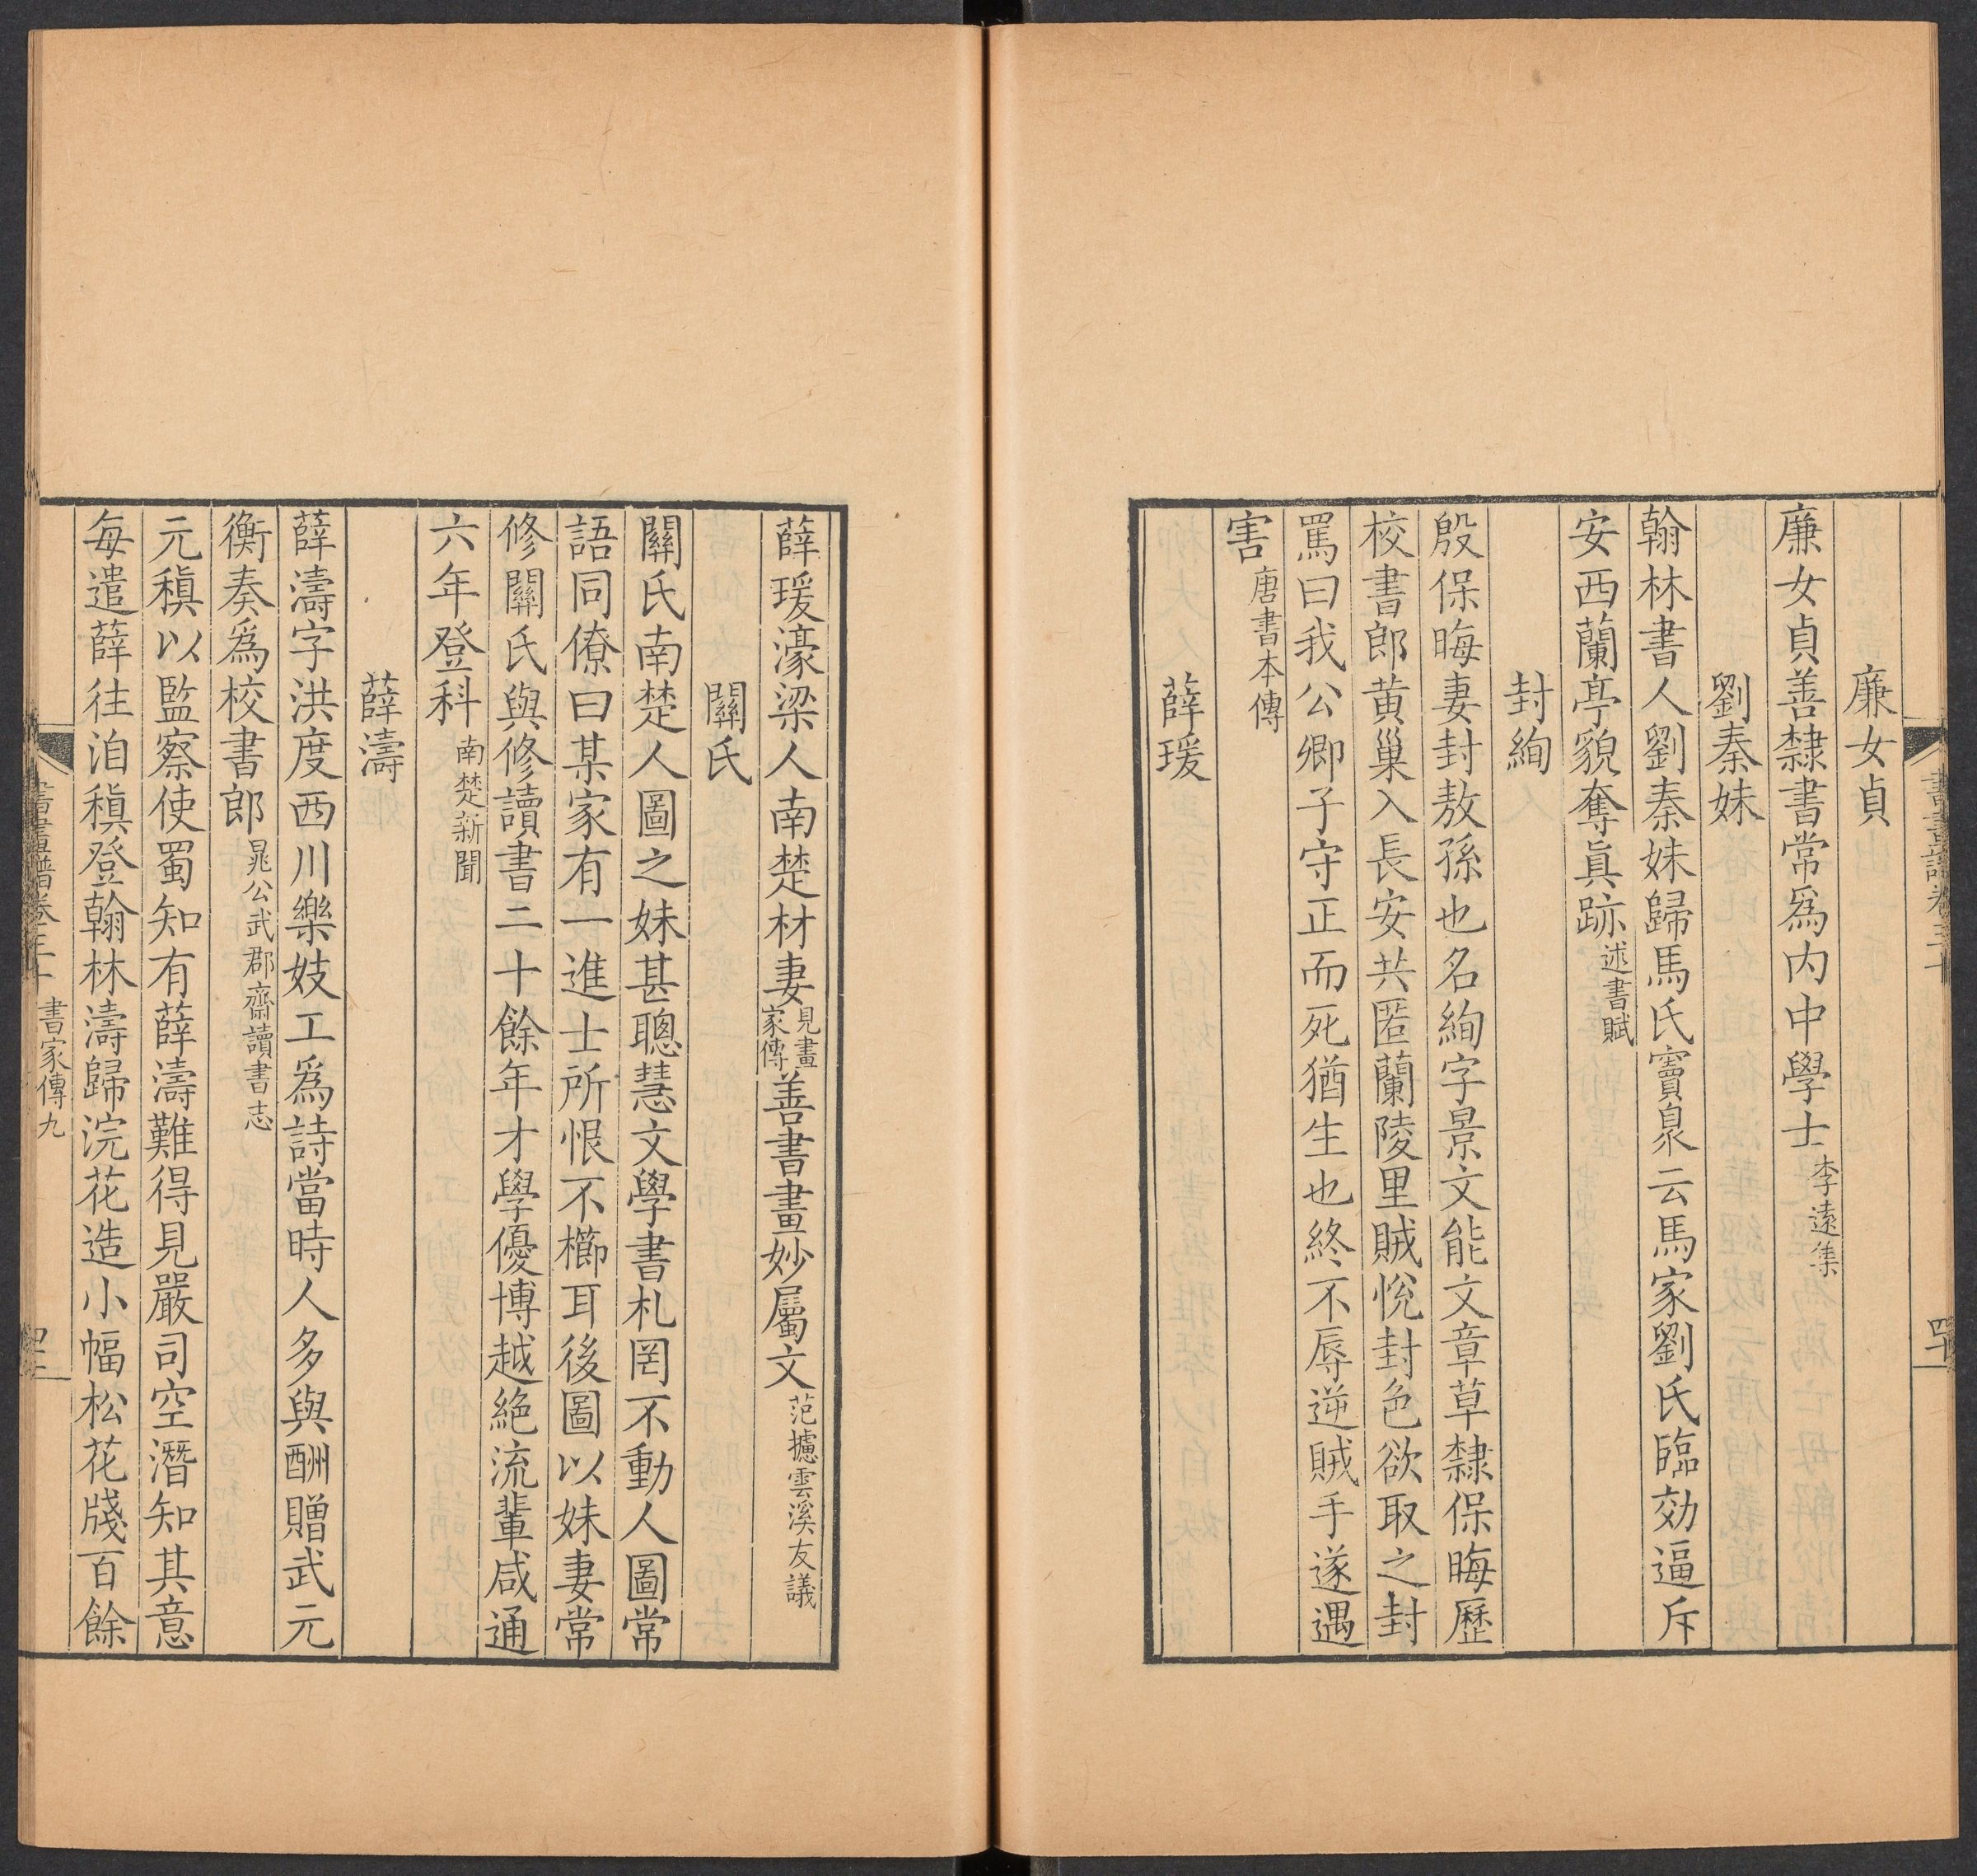 廉女貞
廉女貞善隸書常爲内中學士李遠集
劉秦妹
翰林書人劉秦妹歸馬氏竇臮云馬家劉氏臨効逼斥
安西蘭亭貌奪眞跡述書賦
封絢
殷保晦妻封敖孫也名絢字景文能文章草隸保晦歷
校書郎黄巢入長安共匿蘭陵里賊悅封色欲取之封
罵曰我公卿子守正而死猶生也終不辱逆賊手遂遇
害唐書本傳
薛瑗
薛瑗濠梁人南楚材妻見畫家傳善書畫妙屬文范攄雲溪友議
關氏
關氏南楚人圖之妹甚聰慧文學書札罔不動人圖常
語同僚曰某家有一進士所恨不櫛耳後圖以妹妻常
修關氏與修讀書二十餘年才學優博越絶流輩咸通
六年登科南楚新聞
薛濤
薛濤字洪度西川樂妓工爲詩當時人多與酬贈武元
衡奏爲校書郎晁公武郡齋讀書志
元稹以監察使蜀知有薛濤難得見嚴司空潛知其意
每遣薛往洎稹登翰林濤歸浣花造小幅松花牋百餘
書畫譜卷三十 書家傳九